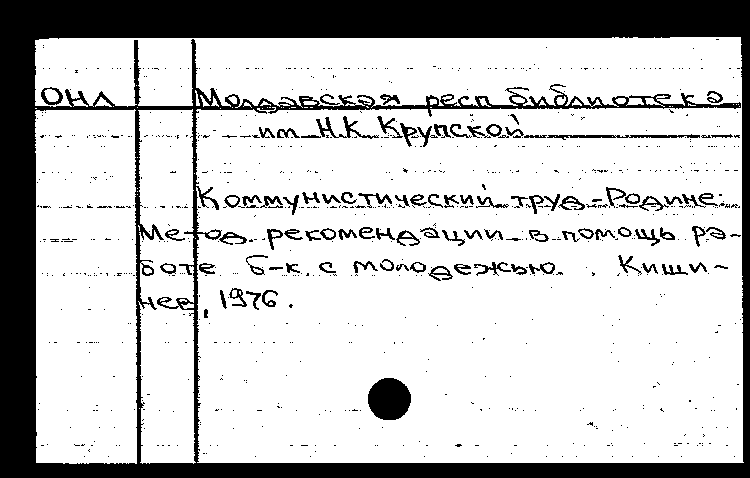 ОНЛ Молдавская респ библиотека
им Н.К. Крупской
Коммунистический труд - Родине:
Метод. рекомендации в помощь ра-
боте б-к с молодежью. Киши-
нев, 1976.